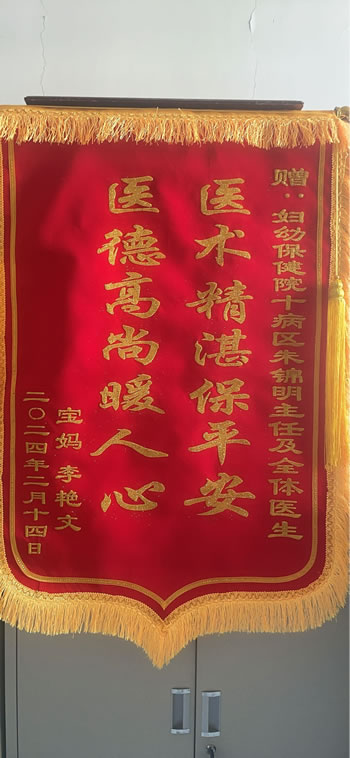 赠：妇幼保健院十病区朱锦明主任及全体医生
医术精湛保平安
医德高尚暖人心
宝妈 李艳文
二〇二四年二月十四日